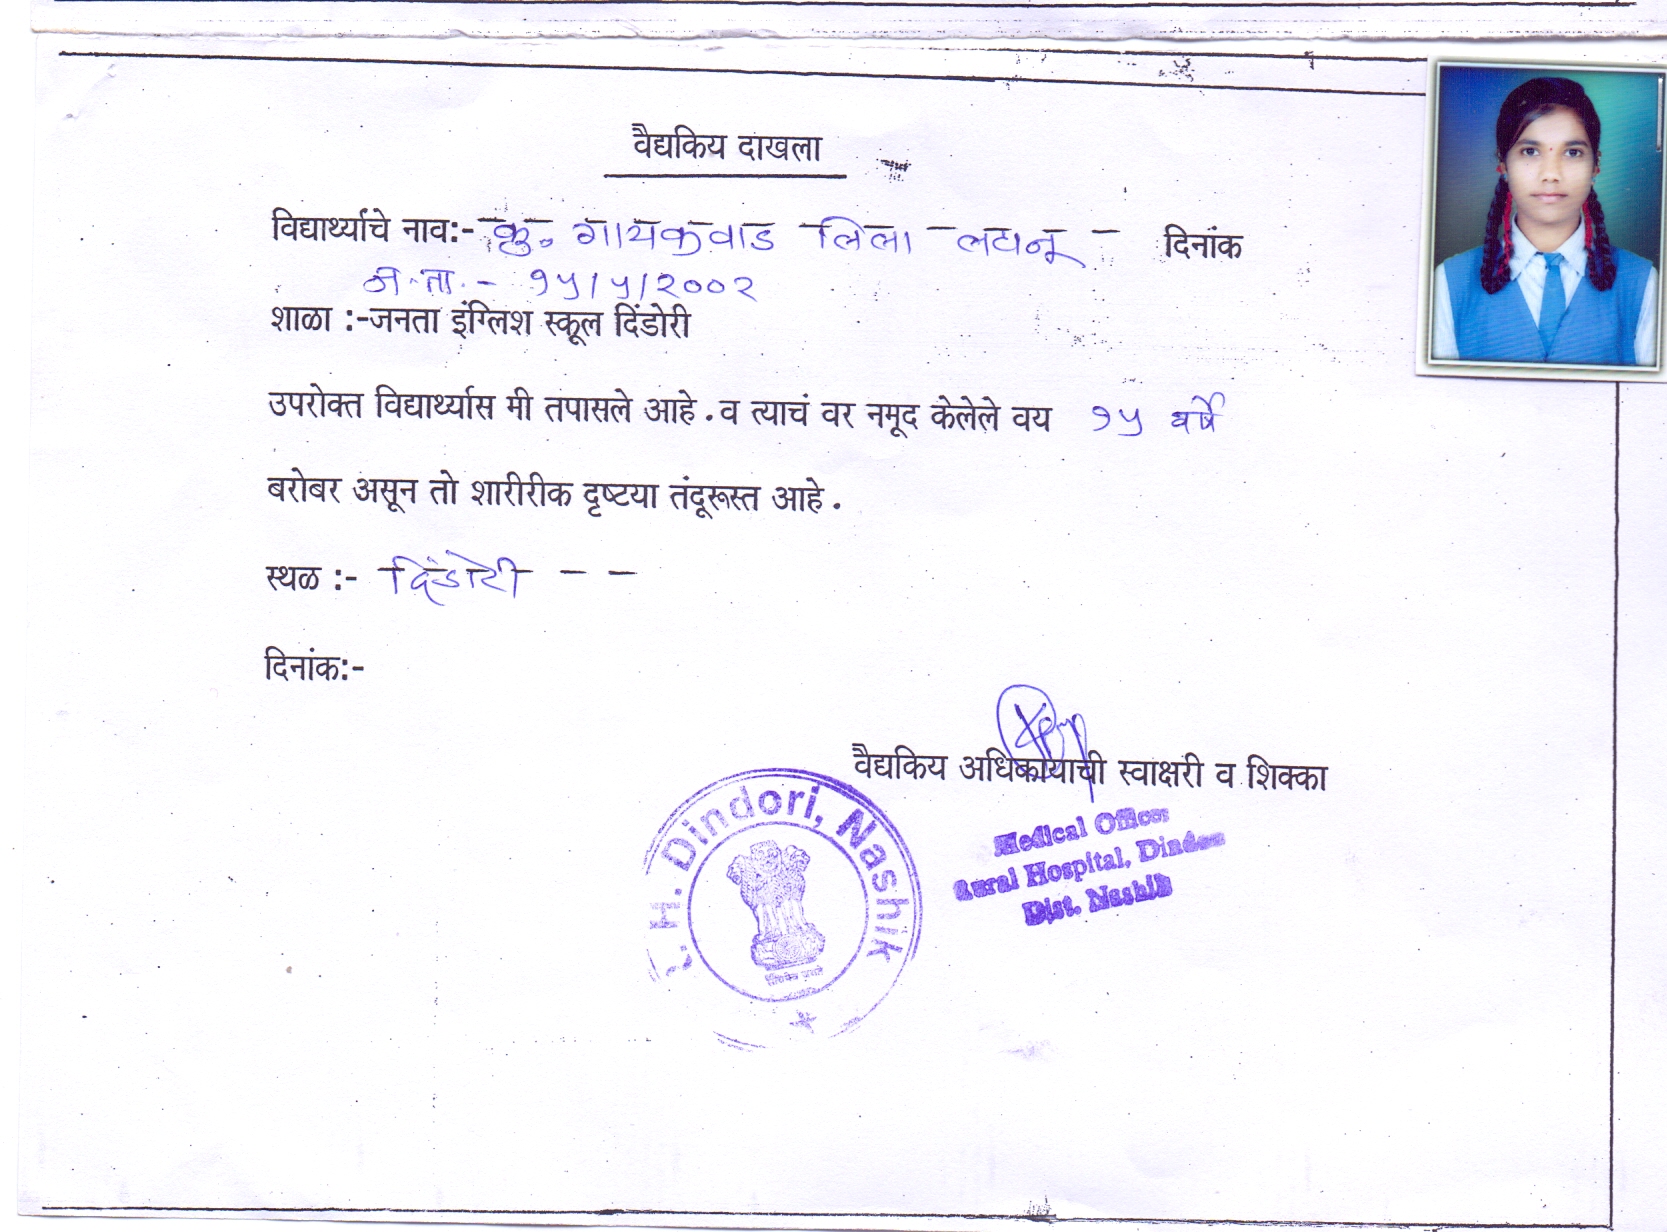 वैद्यकिय दाखला
विद्यार्थ्याचे नाव:- कु. गायकवाड लिला दिनांक
ज.ता. - १५/५/२००२
शाळा :-जनता इंग्लिश स्कूल दिंडोरी
उपरोक्त विद्यार्थ्यास मी तपासले आहे.व त्याचं वर नमूद केलेले वय १५ वर्षे
बरोबर असून तो शारीरीक दृष्टया तंदूरूस्त आहे.
स्थळ :- दिंडोरी - -
दिनांक:-
वैद्यकिय अधिकाऱ्याची स्वाक्षरी व शिक्का
H. Dindori, Nashik
Medical Officer
Rural Hospital, Dindori
Dist. Nashik